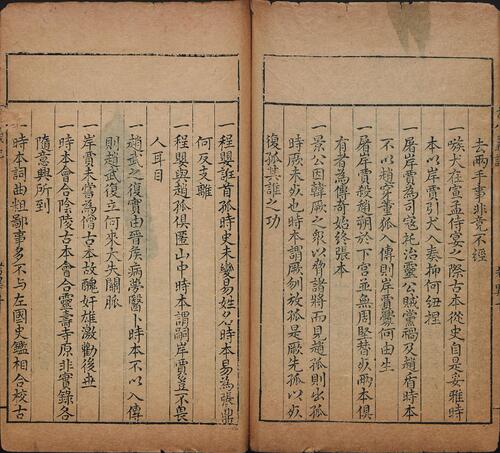 去兩手事非竟不經
一嗾犬在宣孟侍宴之際古本從史自是妥雅時
本以岸賈引犬入奏抑何紐捏
一屠岸賈為司寇治靈公賊黨禍及趙盾時本
不以趙穿董狐入傳則岸賈釁何由生
一屠岸賈殺趙朔於下宮並無周堅替死兩本俱
有者為傳奇始終張本
一景公因韓厥之眾以脅諸將而見趙孤則出孤
時厥未死也時本謂厥刎放孤是厥先孤以死
復孤其誰之功
一程嬰誑首孤時史未變易姓名時本易為張鼎
何反支離
一程嬰與趙孤俱匿山中時本謂嗣岸賈豈不畏
人耳目
一趙武之復實由晉矦病夢醫卜時本不以入傳
則趙武復立何來大失關脈
一岸賈未嘗為僧古本故醜奸雄激勸後世
一時本會合陰陵古本會合靈壽寺原非實錄各
隨意興所到
一時本詞曲粗鄙事多不与左國史鑑相合校古